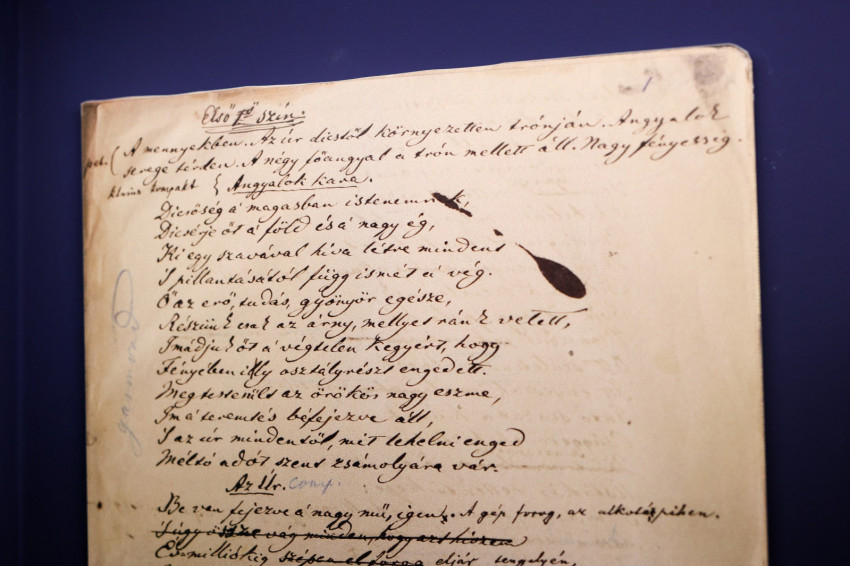 1
Első 1ső szín.
A mennyekben. Az úr dicstől környezetten trónján. Angyalok
pet. ( serege térden. A négy főangyal a trón mellett áll. Nagy fényesség.
kleine kompakt { Angyalok kara.
Dicsőség a magasban istenemnek,
Dicsérje őt a föld és a nagy ég,
Ki egy szavával híva létre mindent
S pillantásától függ ismét a vég.
Ő az erő, tudás, gyönyör egésze,
Részünk csak az árny, mellyet ránk vetett,
Imádjuk őt a végtelen kegyért, hogy
Fényében illy osztályrészt engedett.
Megtestesült az örökös nagy eszme,
Im a teremtés béfejezve áll,
S az úr mindentől, mit lehelni enged
Méltó adót szent zsámolyára vár.
garmond
Az Úr. cony.
Be van fejezve a nagy mű, igen. A gép forog, az alkotó pihen.
S úgy össze vág minden, hogy azt hiszem
Évmilliókig szépen el forog eljár tengelyén,